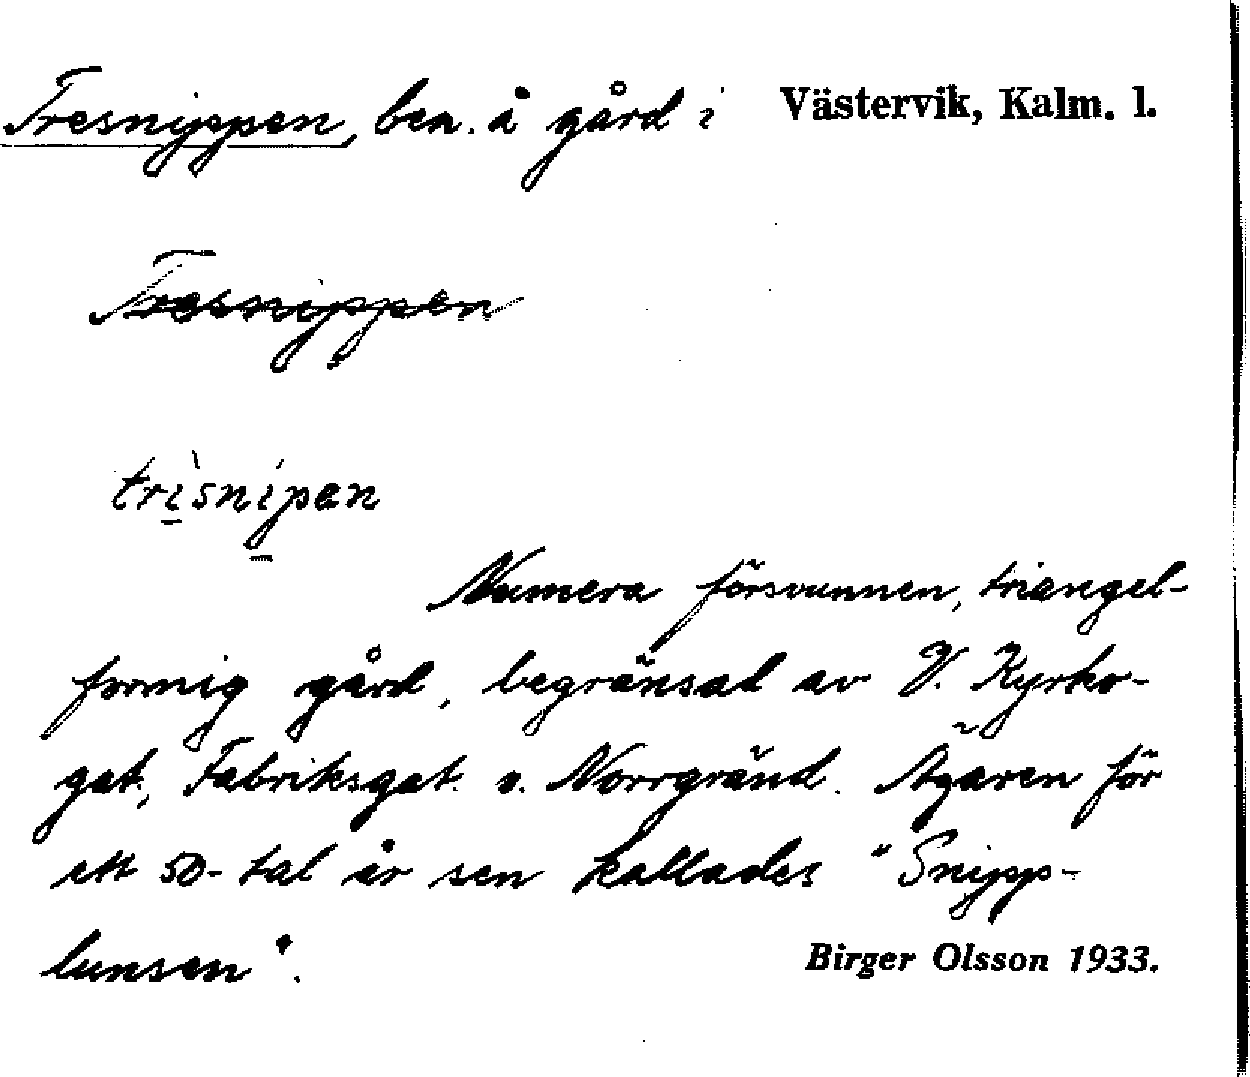 Tresnippen, ben. å gård i Västervik, Kalm. l.
Tresnippen
trìsnípen
Numera försvunnen, triangel-
formig gård, begränsad av V. Kyrko-
gat., Fabriksgat. o. Norrgränd. Ägaren för
ett 50-tal år sen kallades "Snipp-
lunsen".
Birger Olsson 1933.